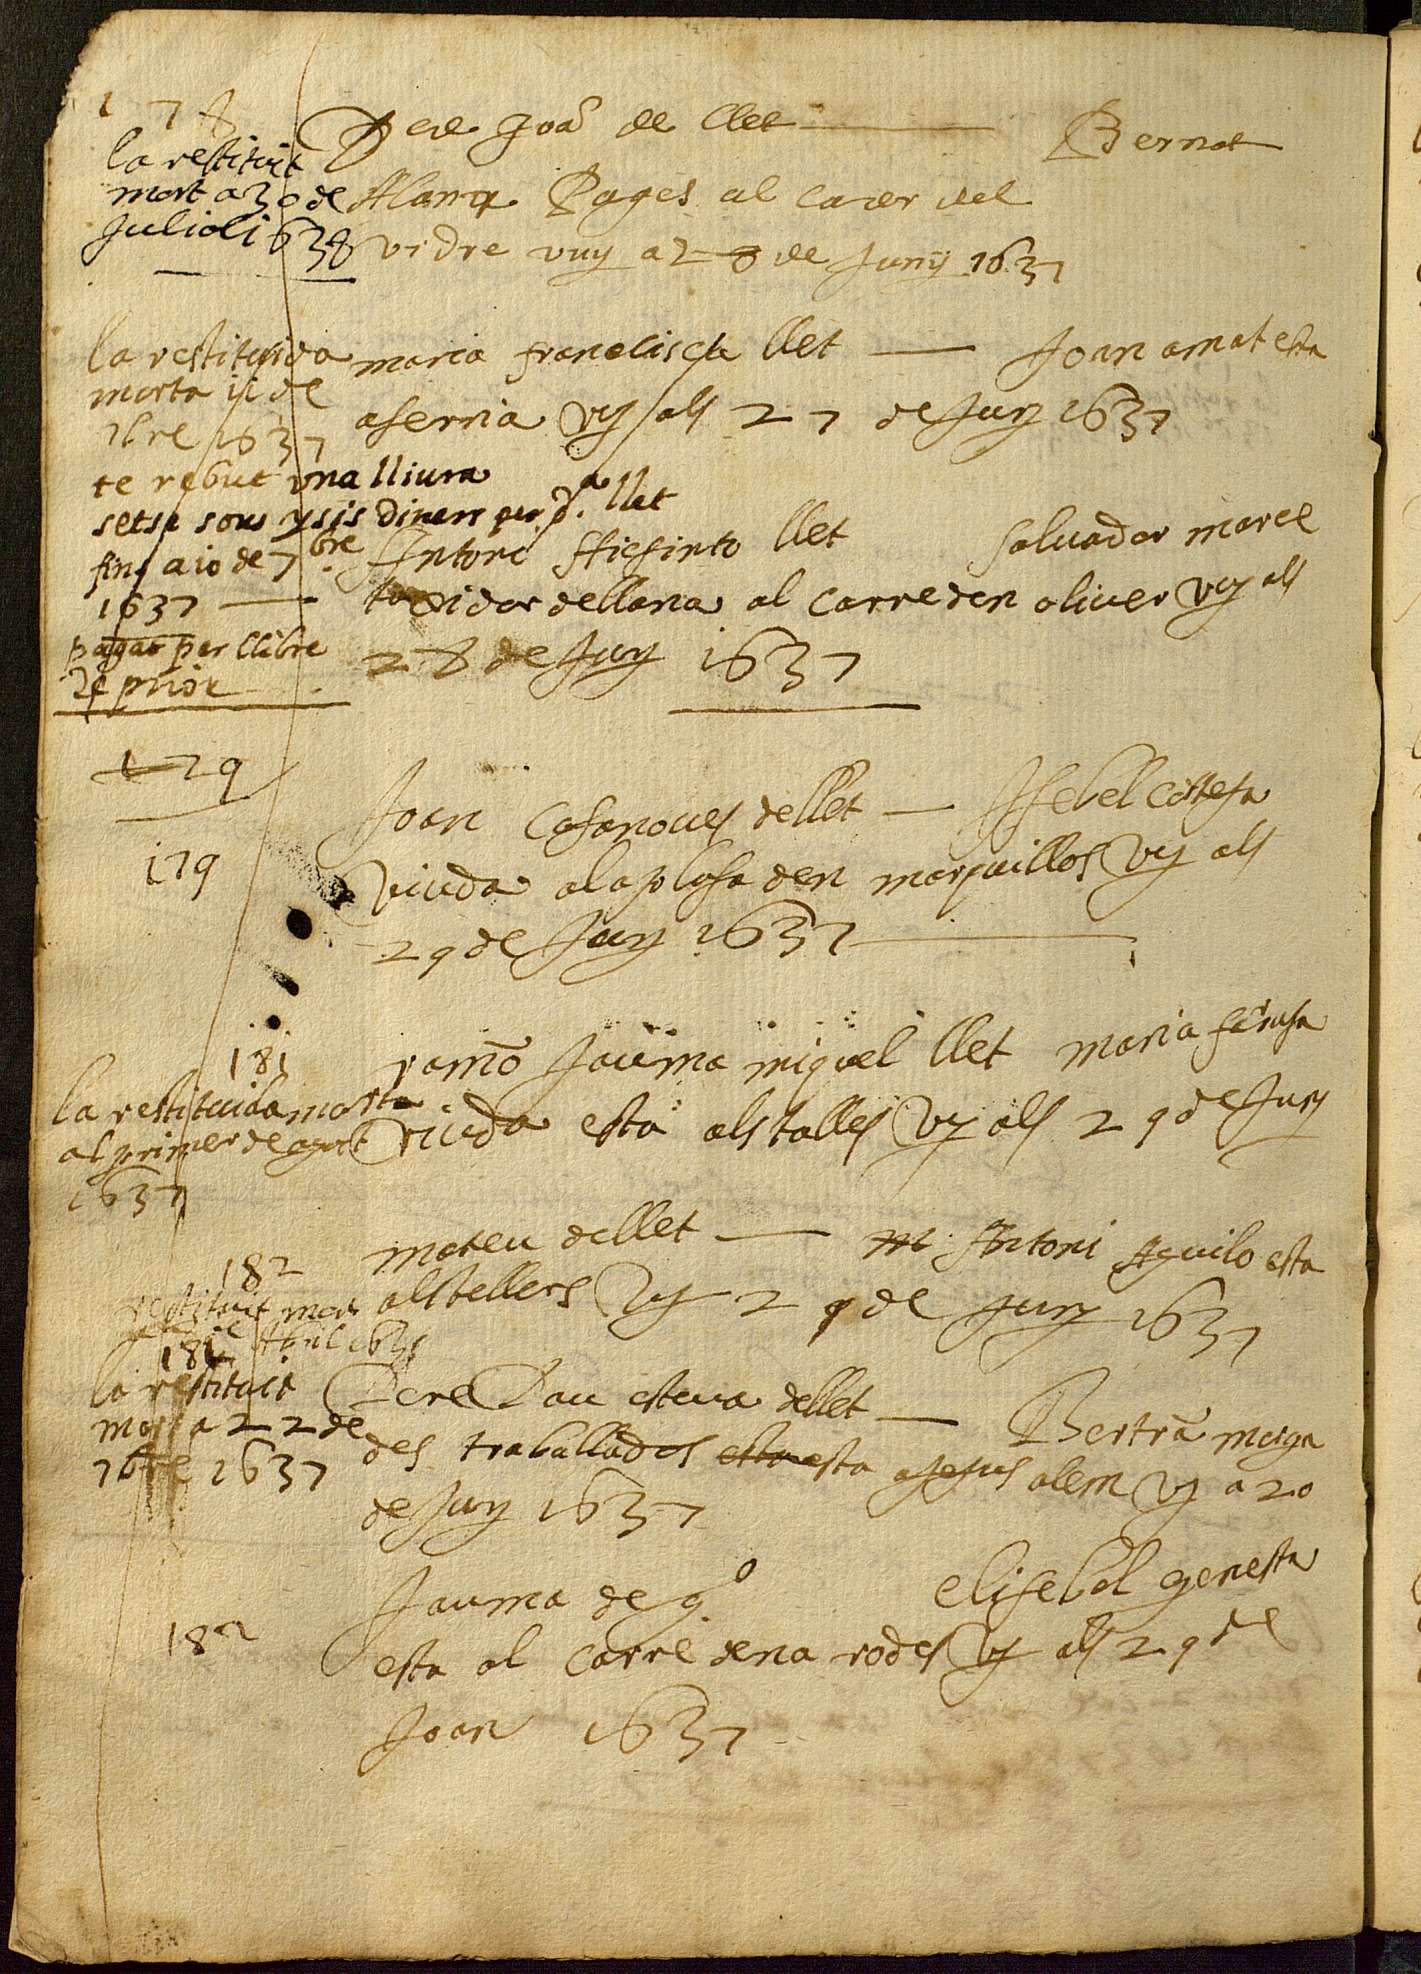 178
Pere Joā de llet — Bernat
la restituit
mort a 30 de
Juliol 1638
Alamy Pages al carer del
vidre vuy a 28 de Juny 1637
la restituida
morta 11 de
7bre 1637
maria francisca llet — Joan amat esta
aserria vy als 27 de Juny 1637
te rebut una lliura
setse sous y sis diners per dª. llet
fins a 10 de 7bre.
1637 —
pagat per llibre
de prior
Antoni Hiesinto llet salvador marce
taxidor dellana al carre den oliver vy als
28 de Juny 1637
179
179
Joan Casanoves dellet — Isebel Costesa
viuda ala plasa den marquillos vy als
29 de Juny 1637
181
la restituida morta
al primer de agost
1637
ramō Jauma miquel llet maria
viuda esta als talles vy als 29 de Juny
182
restituit mort
Abril 1638
mateu dellet — Antoni Aguilo esta
als tellers vy 29 de Juny 1637
181
la restituit
mort a 22 de
7bre 1637
Pere Pau esteva dellet — Bertrā
des traballados esta esta a Jesus alem vy a 20
de Juny 1637
182
Jauma de gº. elisebel genesta
esta al carre dena rodes vy als 29 de
Joan 1637